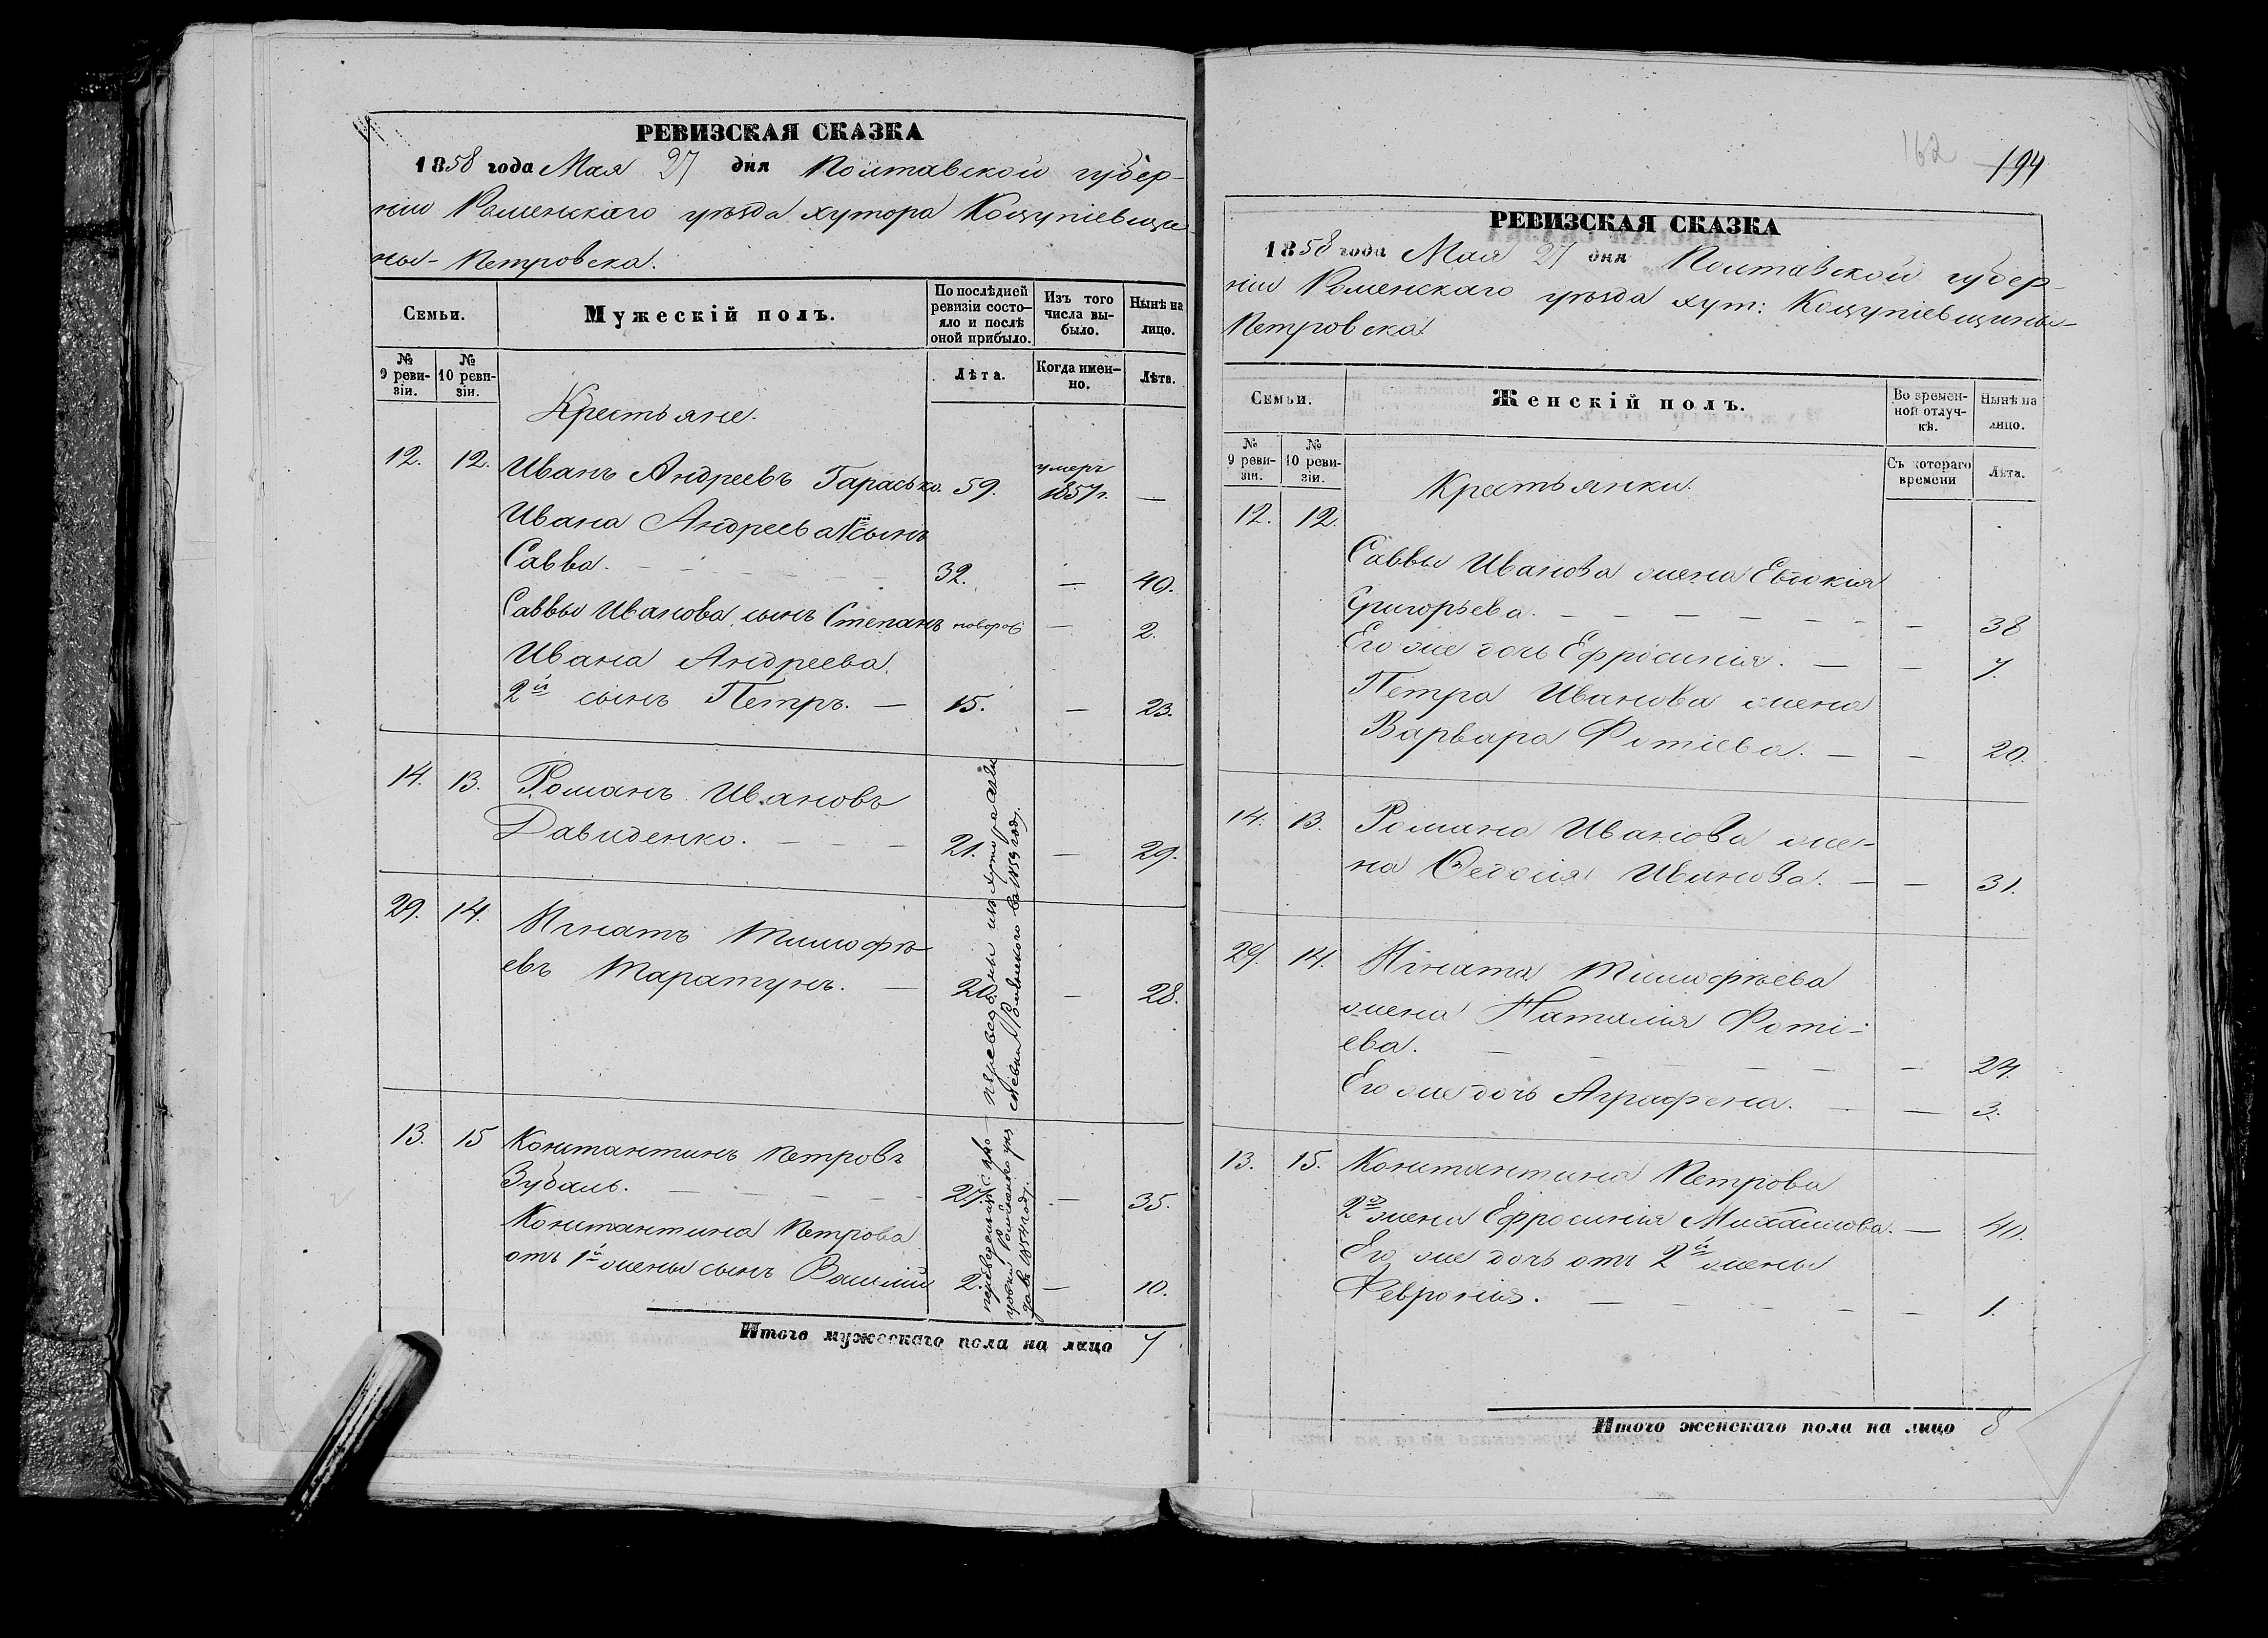 РЕВИЗСКАЯ СКАЗКА
1858 года Мая 27 дня Полтавской губер-
ніи Роменскаго уѣзда хутора Коцупіевщи-
ны-Петровска.
Семьи.
Мужескій полъ.
По послѣдней ревизіи состо-яло и послѣ оной прибыло.
Изъ того числа вы-было.
Нынѣ на лицо.
№ 9 реви-зіи.
№ 10 реви-зіи.
Лѣта.
Когда имен-но.
Лѣта.
Крестьяне.
12. 12. Иванъ Андреевъ Гарасько. 59. умеръ 1857 г. —
Ивана Андреева 1й сынъ
Савва. — 32. — 40.
Саввы Иванова сынъ Степанъ новорож — 2.
Ивана Андреева
2й сынъ Петръ. — 15. — 23.
14. 13. Романъ Ивановъ
Давиденко. — 21. — 29.
29. 14. Игнатъ Тимофѣ-
евъ Таратунъ. — 20. — 28.
переведены изъ хутора
въ 1859 году
13. 15 Константинъ Петровъ
Зубань. — 27. — 35.
Константина Петрова
отъ 1й жены сынъ Василій 2. — 10.
переведены
въ 1854 году.
Итого мужескаго пола на лицо 7
162 194
РЕВИЗСКАЯ СКАЗКА
1858 года Мая 27 дня Полтавской губер-
ніи Роменскаго уѣзда хут: Коцупіевщины-
Петровска
Семьи.
Женскій полъ.
Во времен-ной отлуч-кѣ.
Нынѣ на лицо.
№ 9 реви-зіи.
№ 10 реви-зіи.
Съ котораго времени
Лѣта.
Крестьянки.
12. 12.
Саввы Иванова жена Евдокія
Григорьева. — — 38
Его же дочь Ефросинія. — — 7.
Петра Иванова жена
Варвара Фотіева. — — 20.
14. 13. Романа Иванова же-
на Ѳедосія Иванова. — — 31.
29. 14. Игната Тимофѣева
жена Наталія Фоті-
ева. — — 24.
Его же дочь Аграфена. — — 3.
13. 15. Константина Петрова
2я жена Ефросинія Михайлова. — 40.
Его же дочь отъ 2й жены
Февронія. — — 1.
Итого женскаго пола на лицо 8